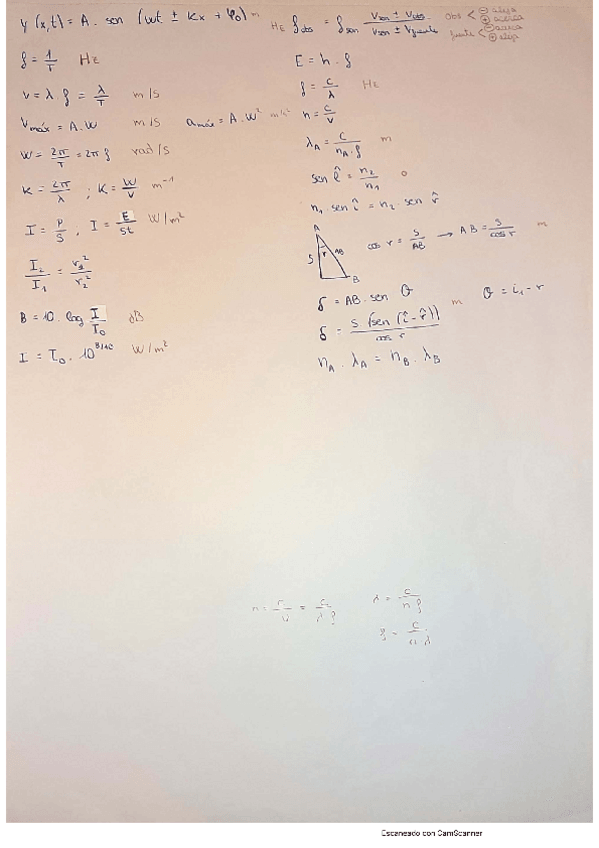 y(x,t) = A. sen (wt ± kx + φ₀) m
f = 1/T Hz
v = λ. f = λ/T m/s
Vmáx = A.W m/s amáx = A.W² m/s²
W = 2π/T = 2π f rad/s
K = 2π/λ ; K = W/V m⁻¹
I = P/S , I = E/St W/m²
I₂/I₁ = r₁²/r₂²
B = 10. log I/I₀ dB
I = I₀. 10^B/10 W/m²
Hz fobs = fson Vson ± Vobs / Vson ± Vfuente
obs < ⊖ aleja
⊕ acerca
fuente < ⊖ acerca
⊕ aleja
E = h. f
f = c/λ Hz
n = c/v
λA = c/nA.f m
sen l̂ = n₂/n₁ o
n₁. sen î = n₂. sen r̂
A
S r AB
B
cos r = S/AB → AB = S/cos r m
δ = AB. sen θ m θ = i₁ - r
δ = S (sen (î - r̂))/cos r
nA. λA = nB. λB
n = c/v = c/λ f λ = c/n f
f = c/n λ
Escaneado con CamScanner